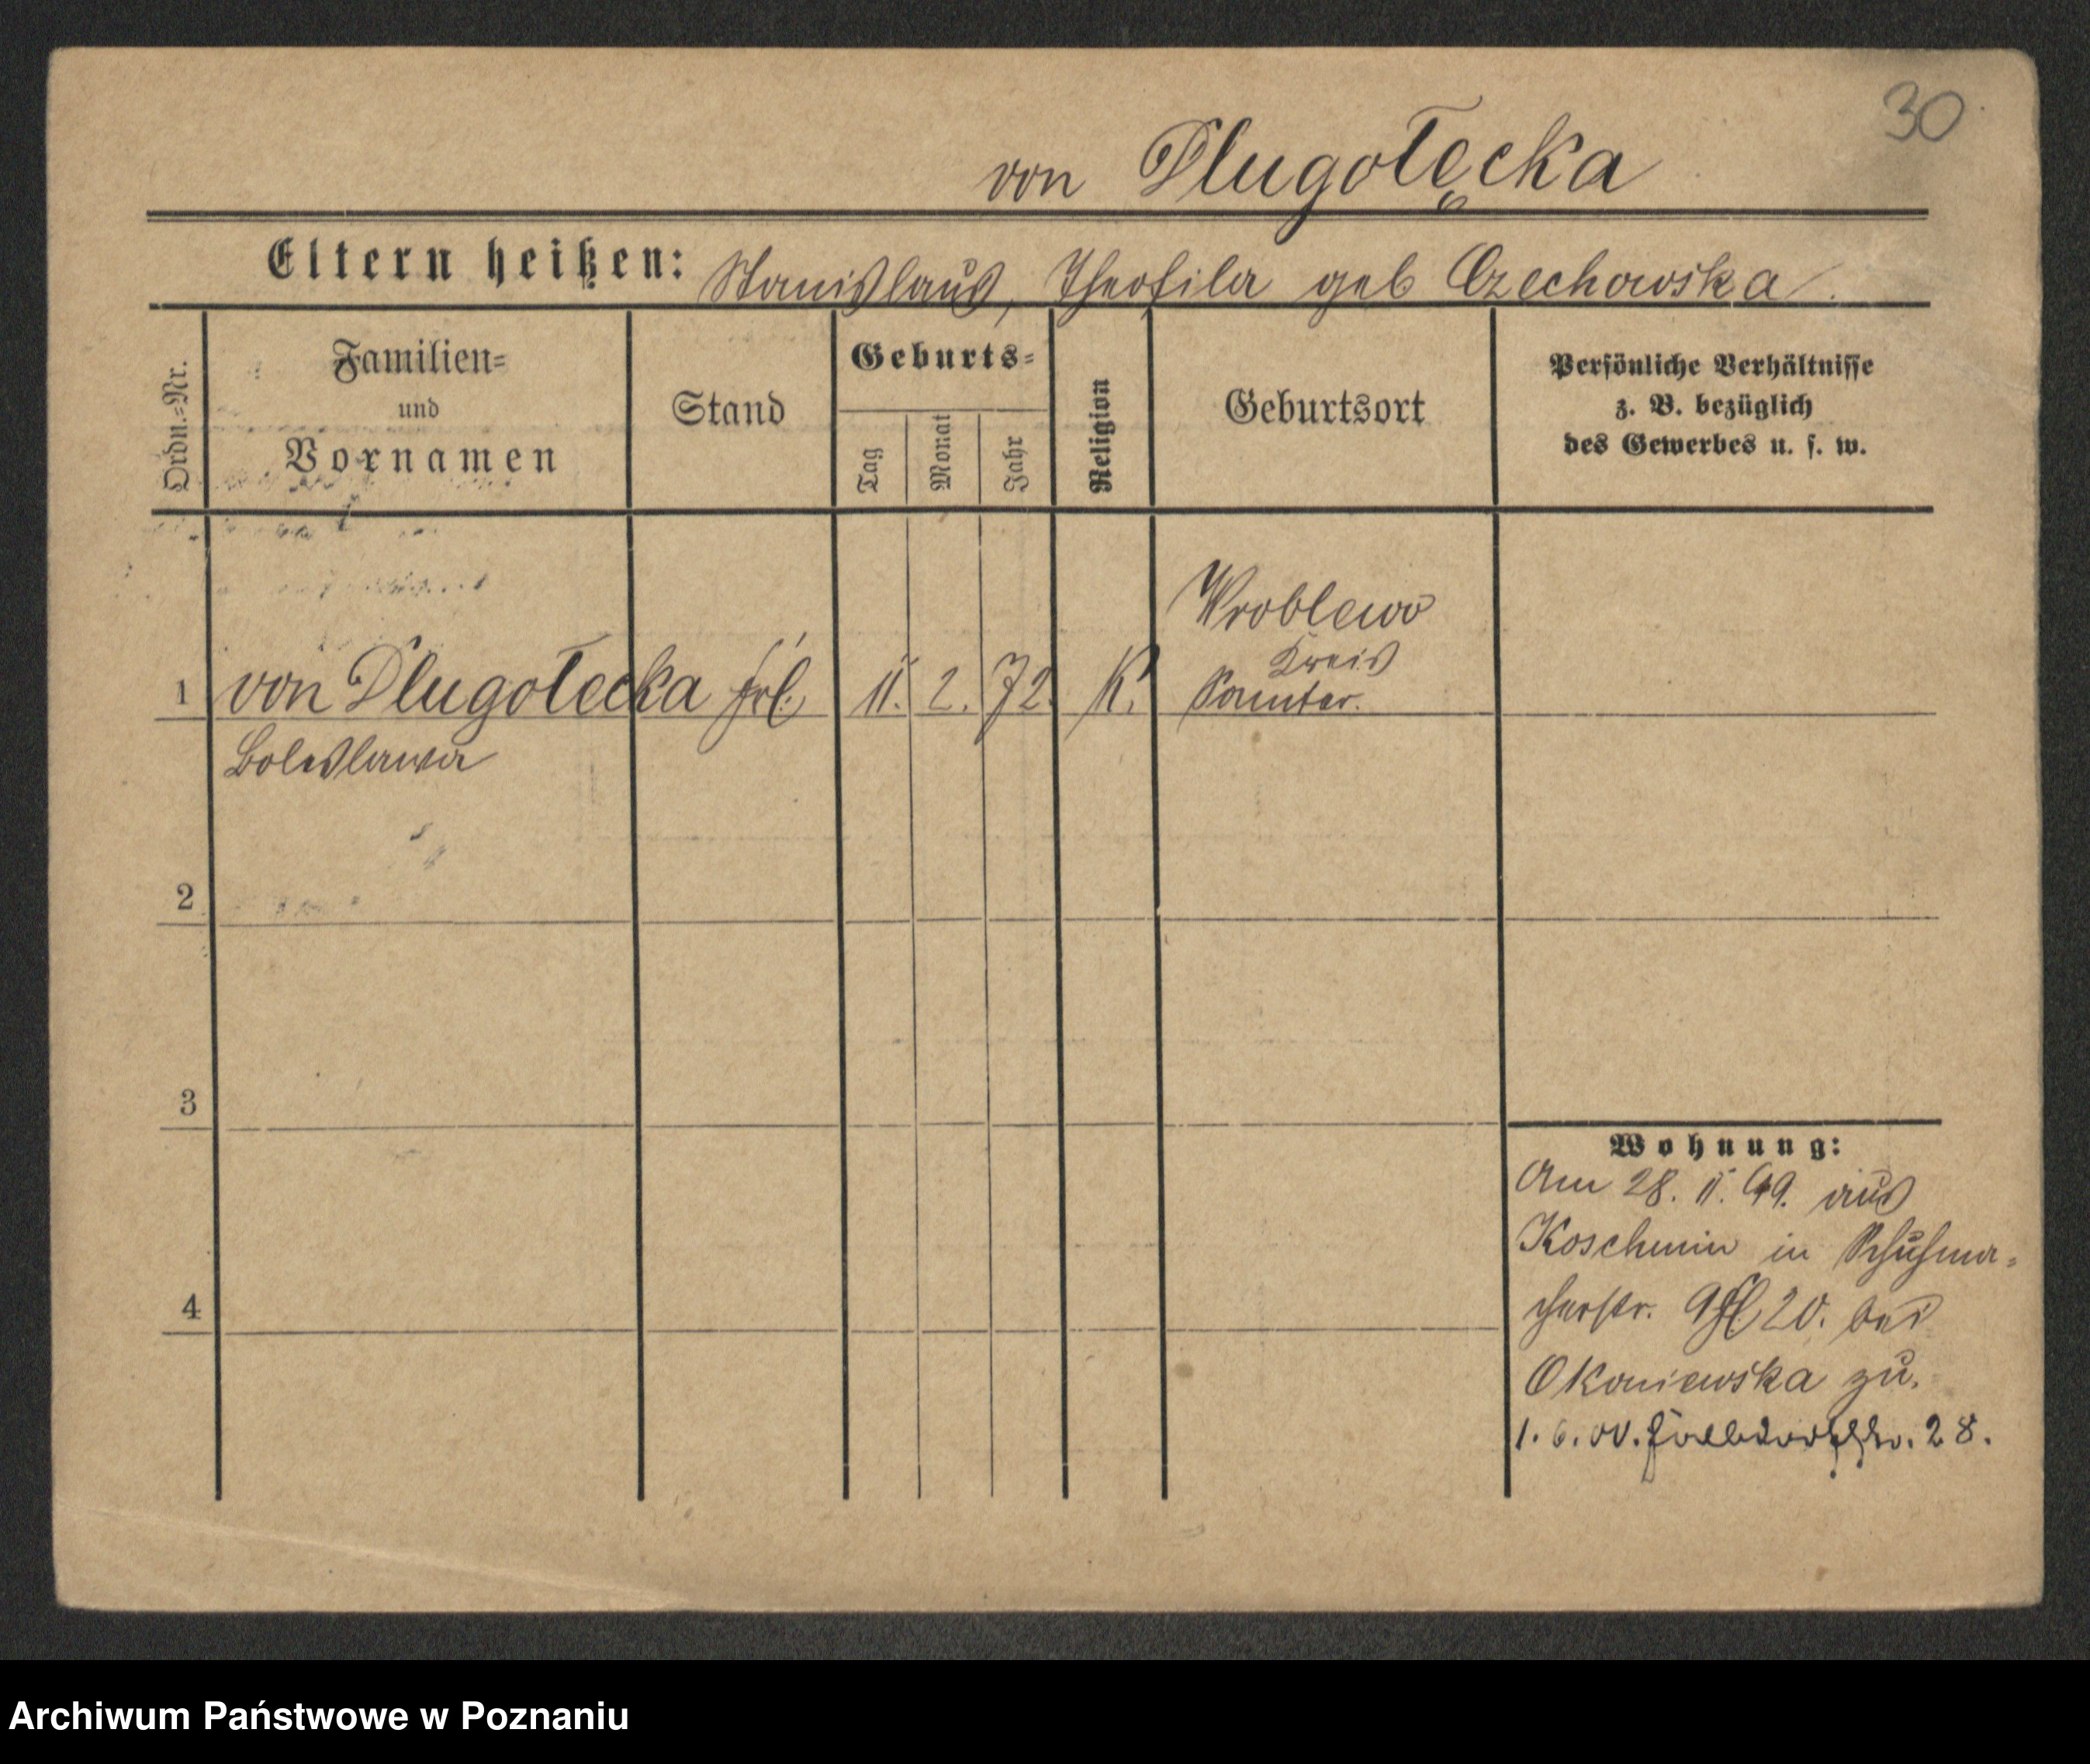 30
von Dlugołęcka
Eltern heißen: Stanislaus, Theofila geb Czechowska.
Ordn.-Nr.
Familien-
und
Vornamen
Stand
Geburts-
Tag
Monat
Jahr
Religion
Geburtsort
Persönliche Verhältnisse
z. B. bezüglich
des Gewerbes u. s. w.
Wroblewo
Kreis
1 von Dlugołecka Frl. 11. 2. 72. K. Samter.
Boleslawa
2
3
Wohnung:
Am 28. 11. 99. aus
Koschmin in Schuhma-
4
cherstr. 20. bei
Okoniewska zu.
1. 6. 00. 28.
Archiwum Państwowe w Poznaniu